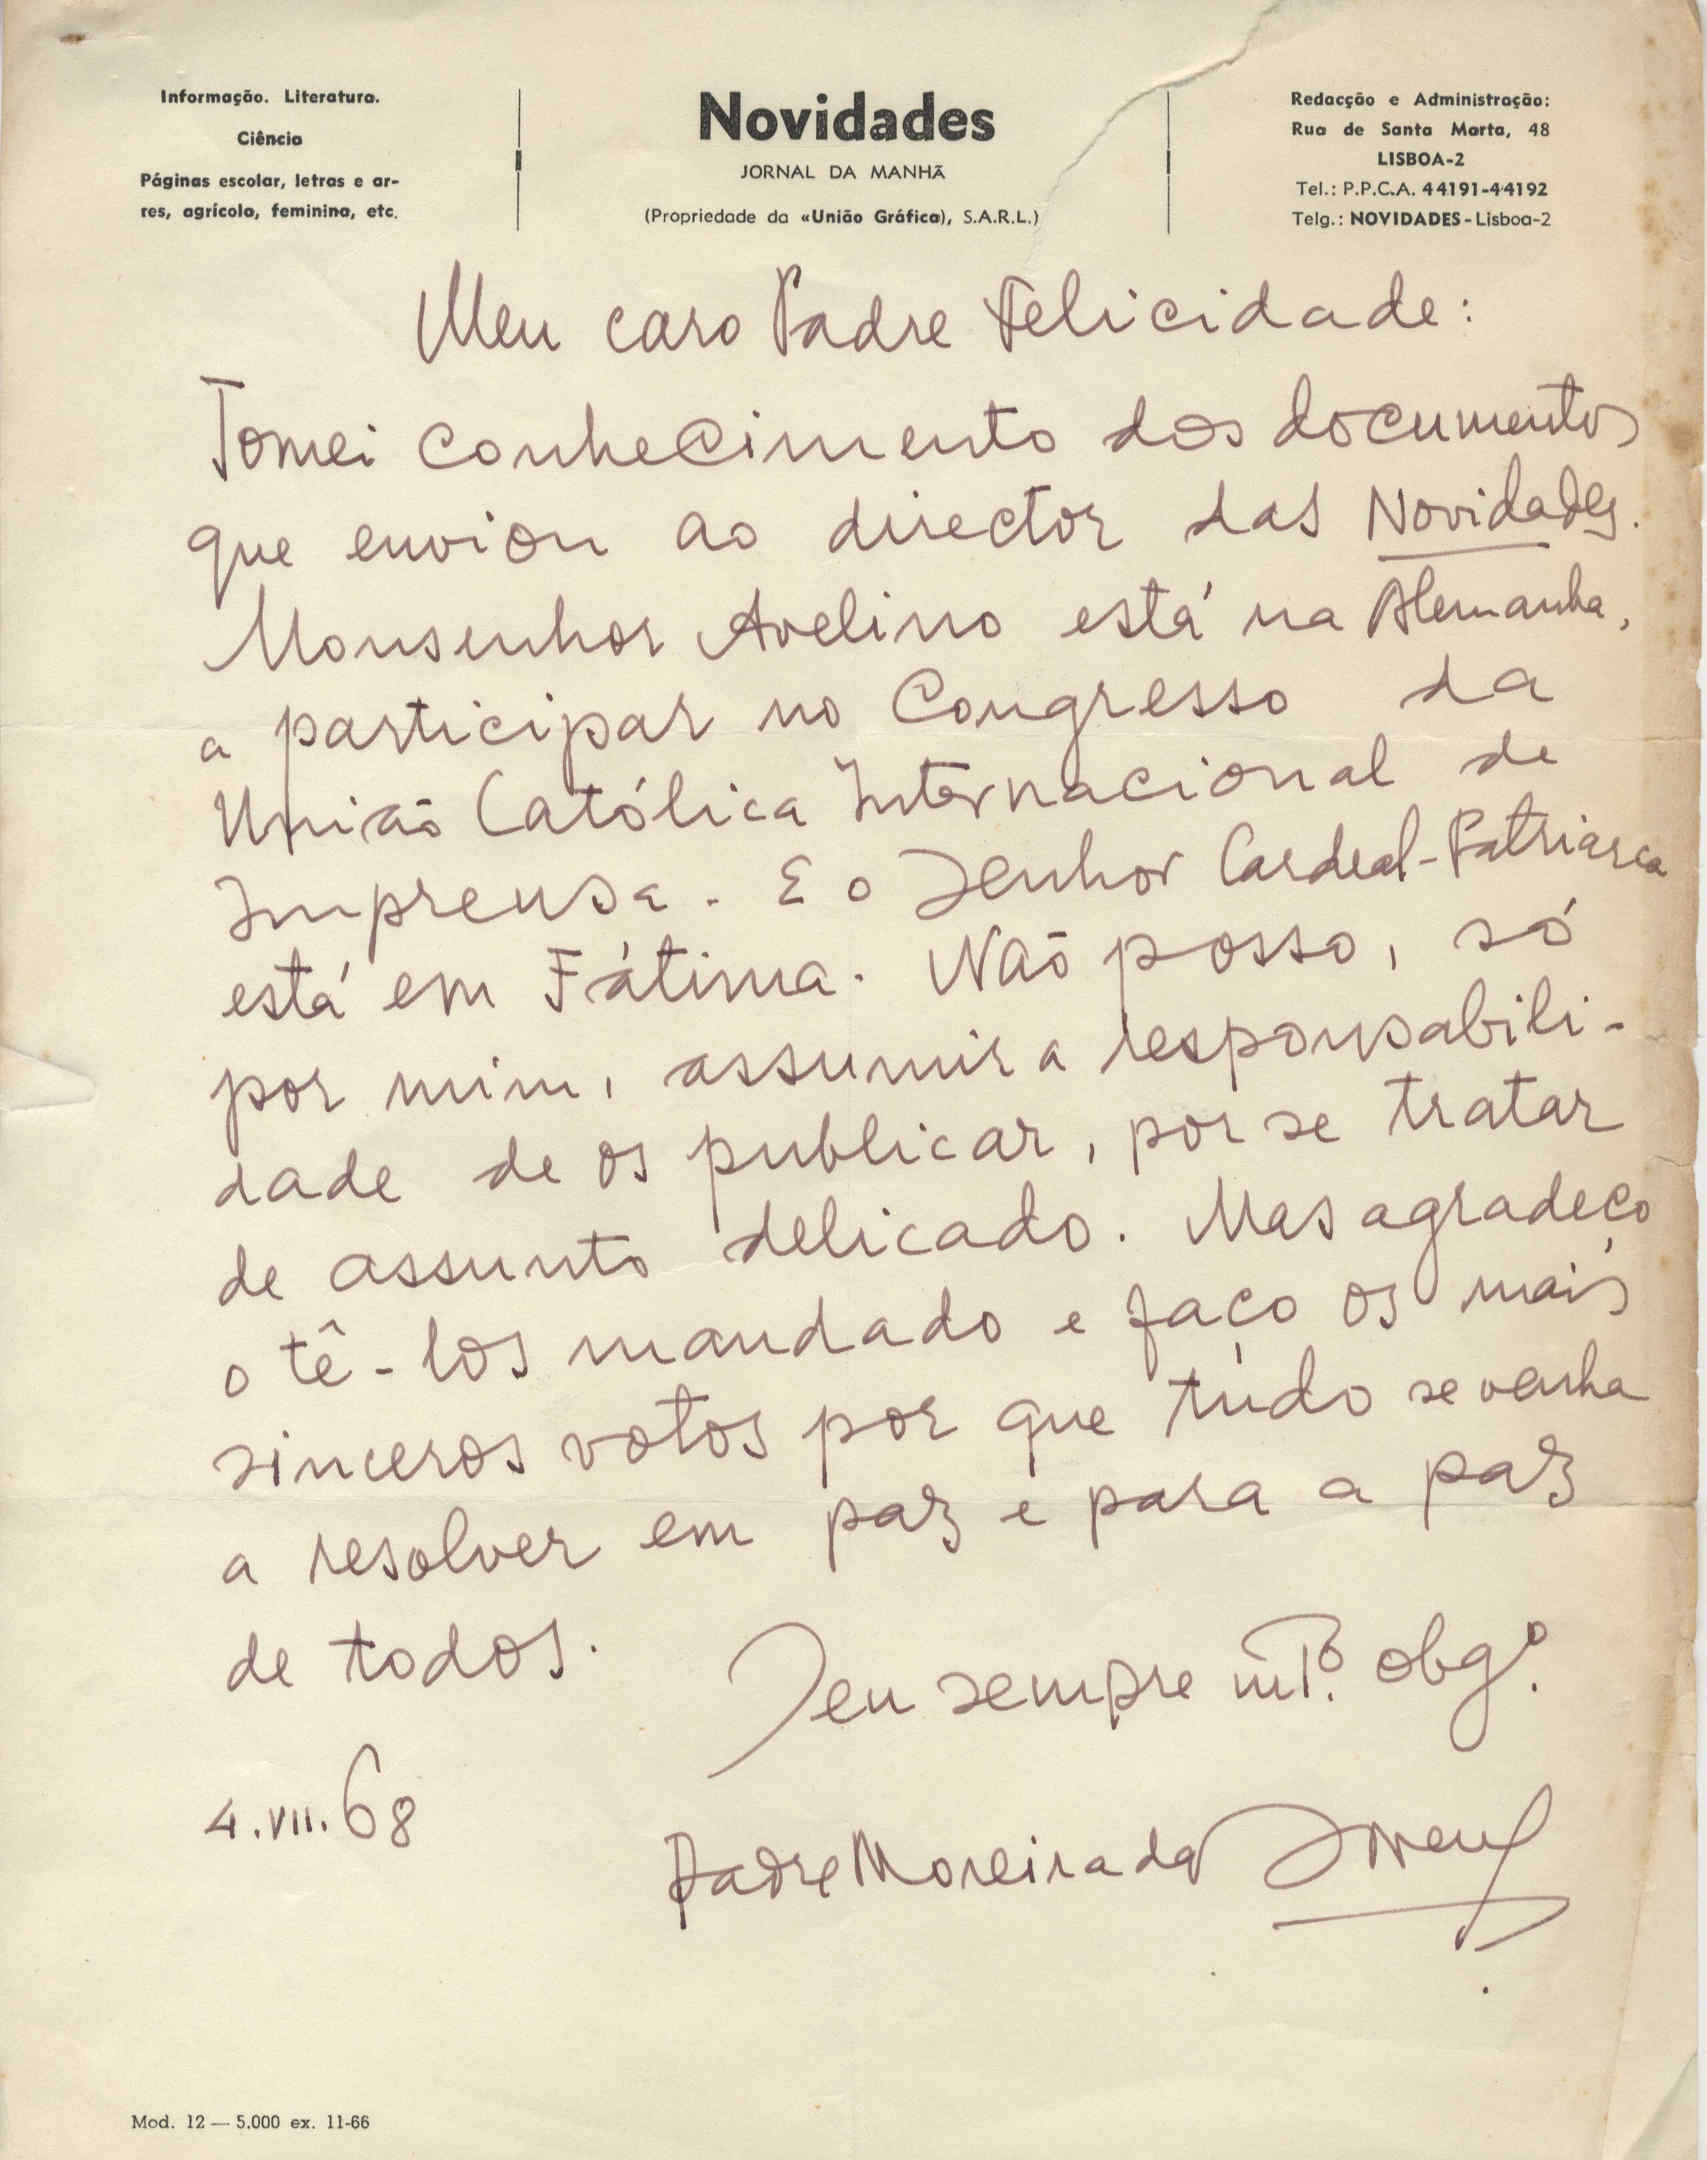 Informação. Literatura.
Ciência
Páginas escolar, letras e ar-
res, agrícola, feminina, etc.
Novidades
JORNAL DA MANHÃ
(Propriedade da «União Gráfica), S.A.R.L.)
Redacção e Administração:
Rua de Santa Marta, 48
LISBOA-2
Tel.: P.P.C.A. 44191-44192
Telg.: NOVIDADES-Lisboa-2
Meu caro Padre Felicidade:
Tomei conhecimento dos documentos
que enviou ao director das Novidades.
Monsenhor Avelino está na Alemanha,
a participar no Congresso da
União Católica Internacional de
Imprensa. E o Senhor Cardeal-Patriarca
está em Fátima. Não posso, só
por mim, assumir a responsabili-
dade de os publicar, por se tratar
de assunto delicado. Mas agradeço
o tê-los mandado e faço os mais
sinceros votos por que tudo se venha
a resolver em paz e para a paz
de todos.
Seu sempre mtº. obgº.
4.VII.68
Padre Moreira das
Mod. 12 — 5.000 ex. 11-66